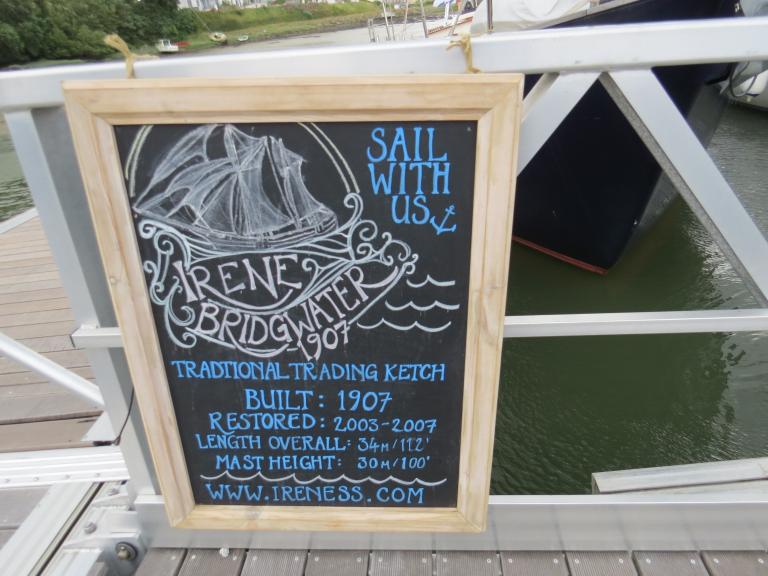 SAIL
WITH
US
IRENE
BRIDGWATER
-1907
TRADTIONAL TRADING KETCH
BUILT: 1907
RESTORED: 2003-2007
LENGTH OVERALL: 34M/112'
MAST HEIGHT: 30M/100'
WWW.IRENESS.COM